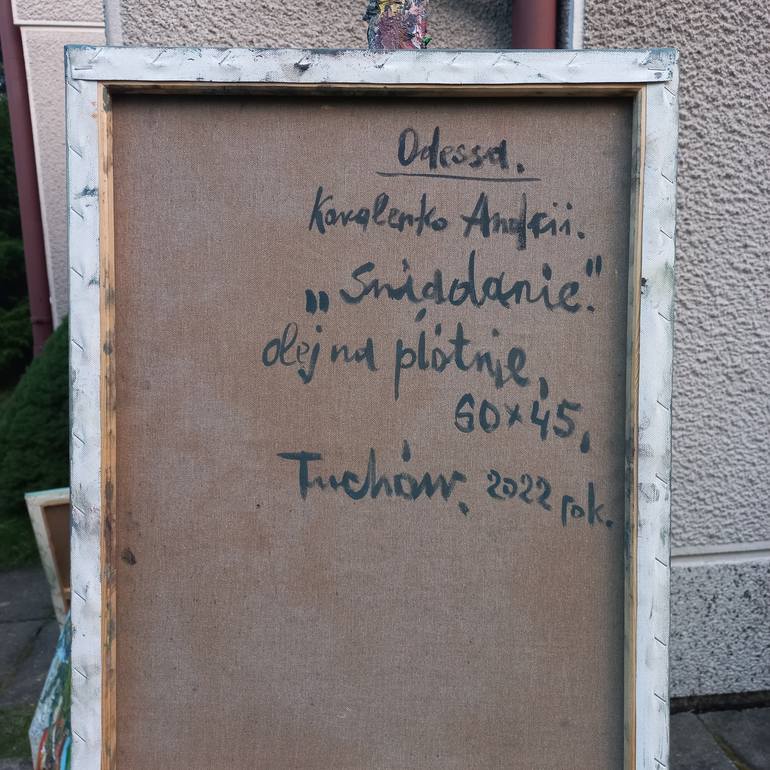 Odessa.
Kovalenko Andrii.
„Śniadanie".
olej na płótnie,
60×45,
Tuchów, 2022 rok.